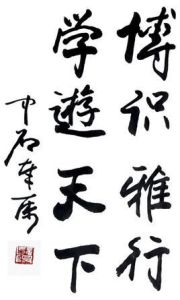 博识雅行
学遊天下
中石奉为